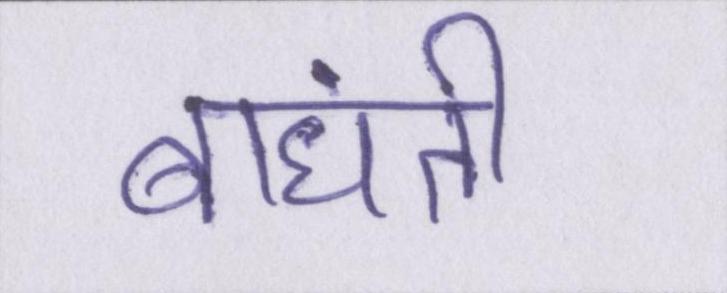 बाधंती